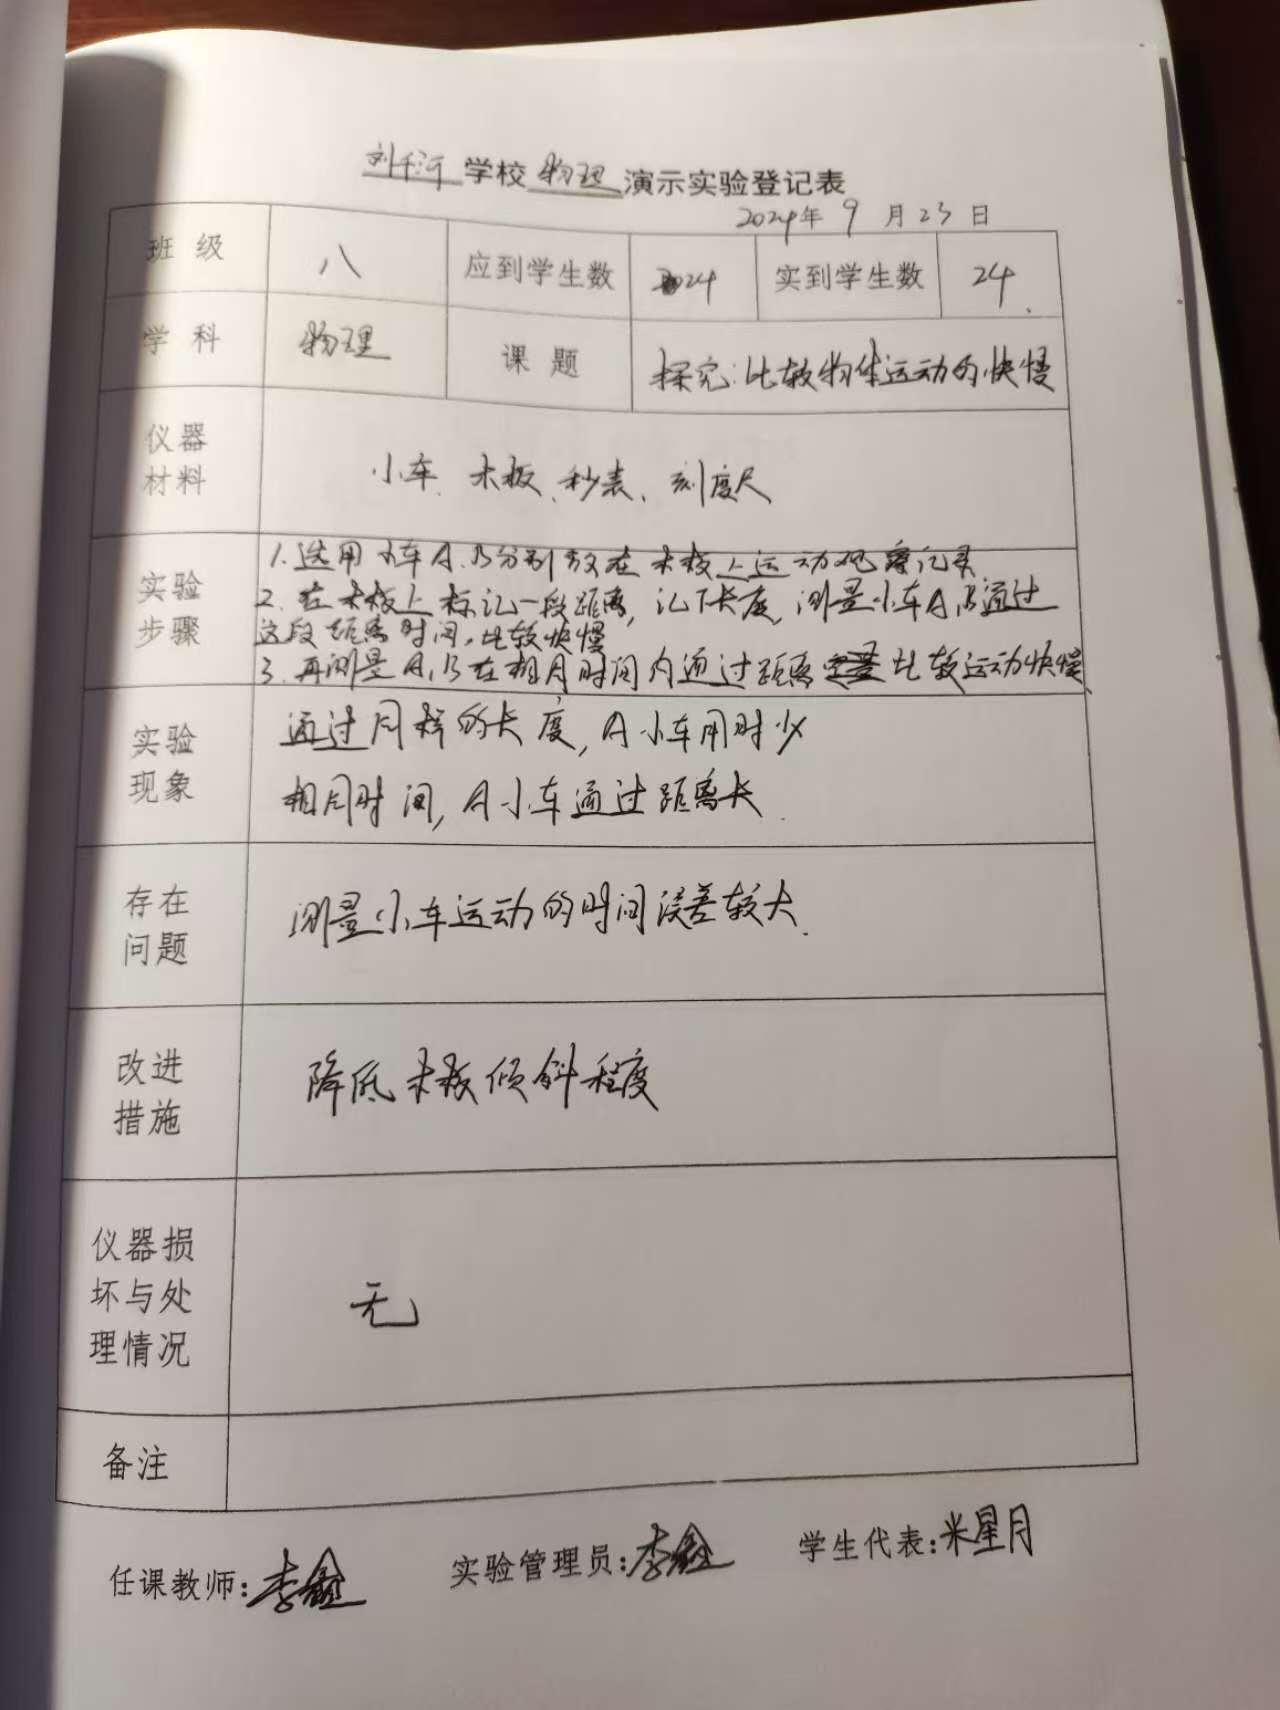 刘千河学校物理演示实验登记表
2024年9月23日
班级 八 应到学生数 24 实到学生数 24
学科 物理 课题 探究:比较物体运动的快慢
仪器
材料
小车、木板、秒表、刻度尺
实验
步骤
1.选用小车A、B分别放在木板上运动观察记录
2.在木板上标记一段距离,记下长度,测量小车A、B通过
这段距离时间,比较快慢
3.再测量A,B在相同时间内通过距离 比较运动快慢、
实验
现象
通过同样的长度,A小车用时少
相同时间,A小车通过距离长.
存在
问题
测量小车运动的时间误差较大.
改进
措施
降低木板倾斜程度
仪器损
坏与处
理情况
无
备注
任课教师:李鑫 实验管理员:李鑫 学生代表:米星月